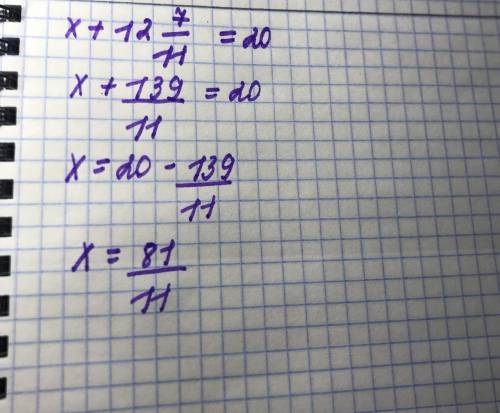 x + 12 7/11 = 20
x + 139/11 = 20
x = 20 - 139/11
x = 81/11